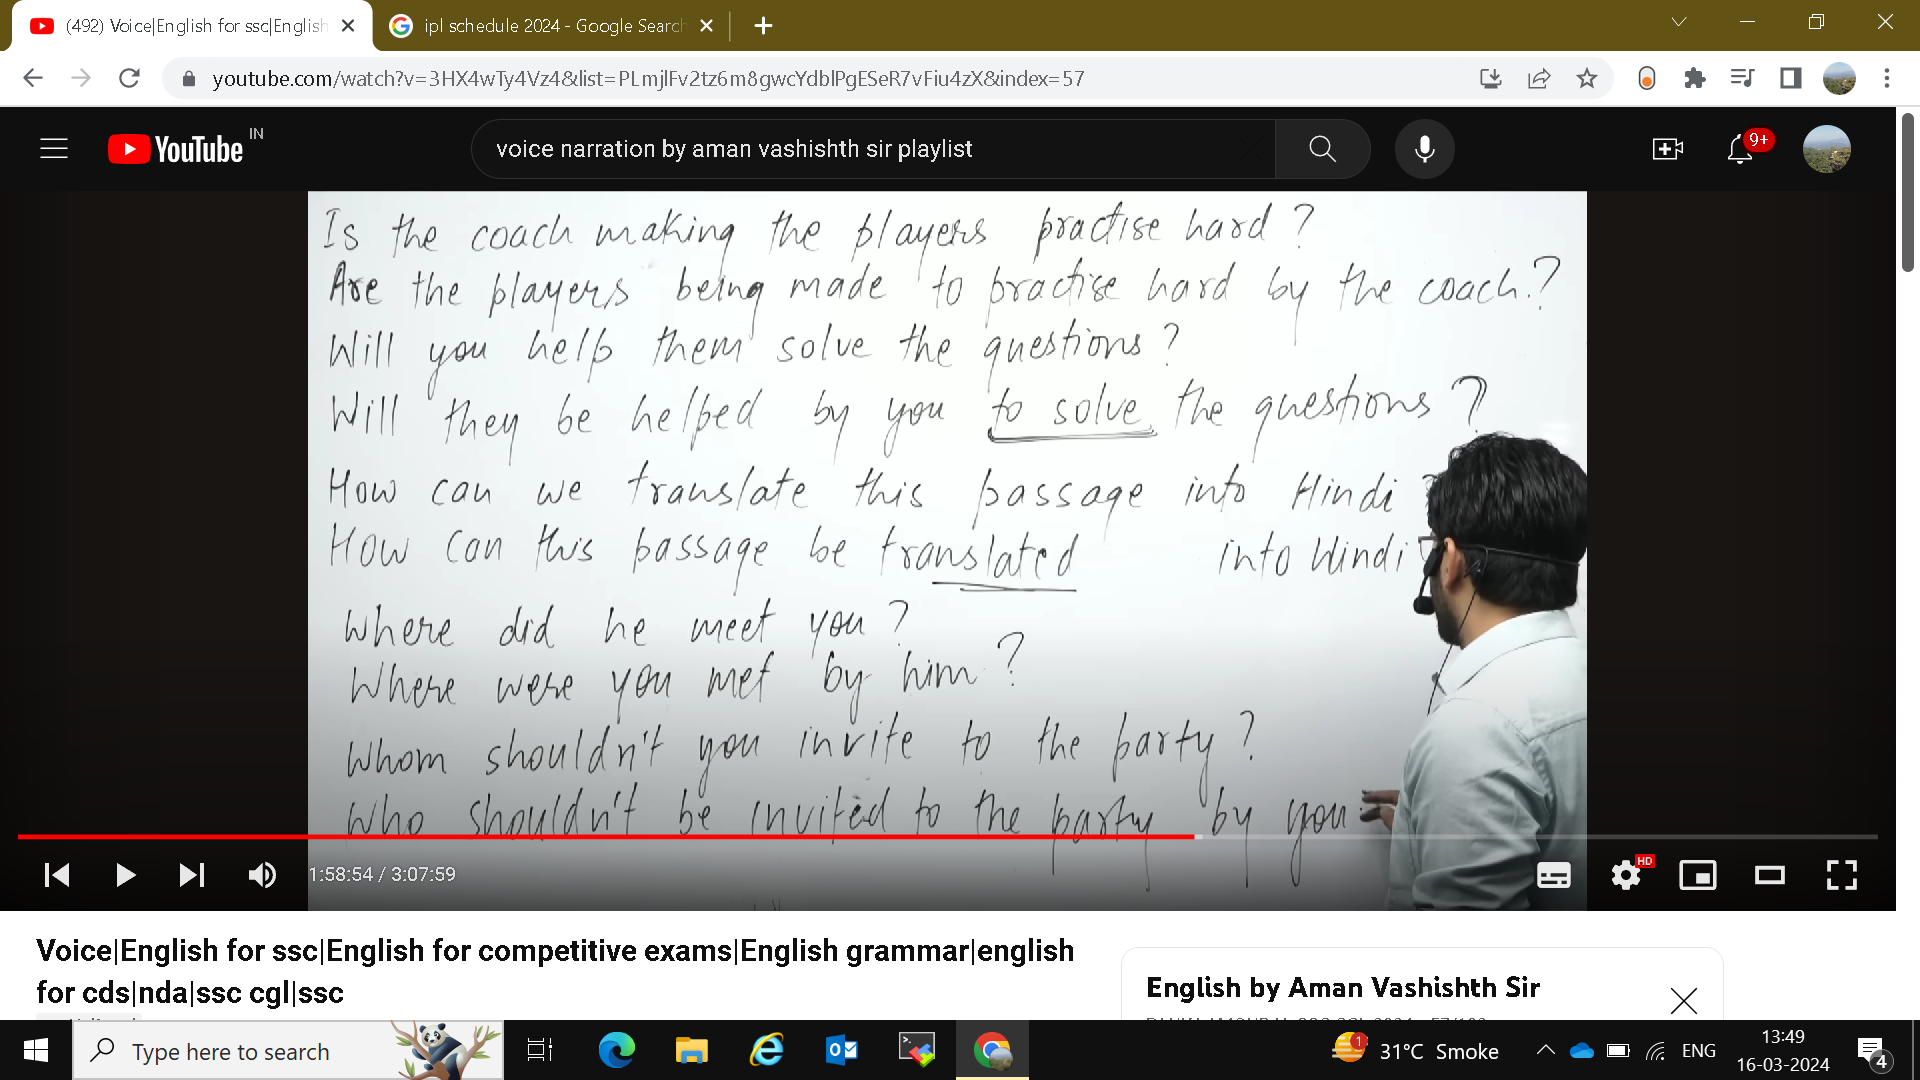 (492) Voice|English for ssc|English
ipl schedule 2024 - Google Search
youtube.com/watch?v=3HX4wTy4Vz4&list=PLmjlFv2tz6m8gwcYdblPgESeR7vFiu4zX&index=57
YouTube IN
voice narration by aman vashishth sir playlist
9+
Is the coach making the players practise hard?
Are the players being made to practise hard by the coach.?
Will you help them solve the questions?
Will they be helped by you to solve the questions?
How can we translate this passage into Hindi
How can this passage be translated into Hindi
Where did he meet you?
Where were you met by him?
Whom shouldn't you invite to the party?
Who shouldn't be invited to the party by you
1:58:54 / 3:07:59
HD
Voice|English for ssc|English for competitive exams|English grammar|english
for cds|nda|ssc cgl|ssc
English by Aman Vashishth Sir
Type here to search
1
31°C Smoke
ENG
13:49
16-03-2024
4